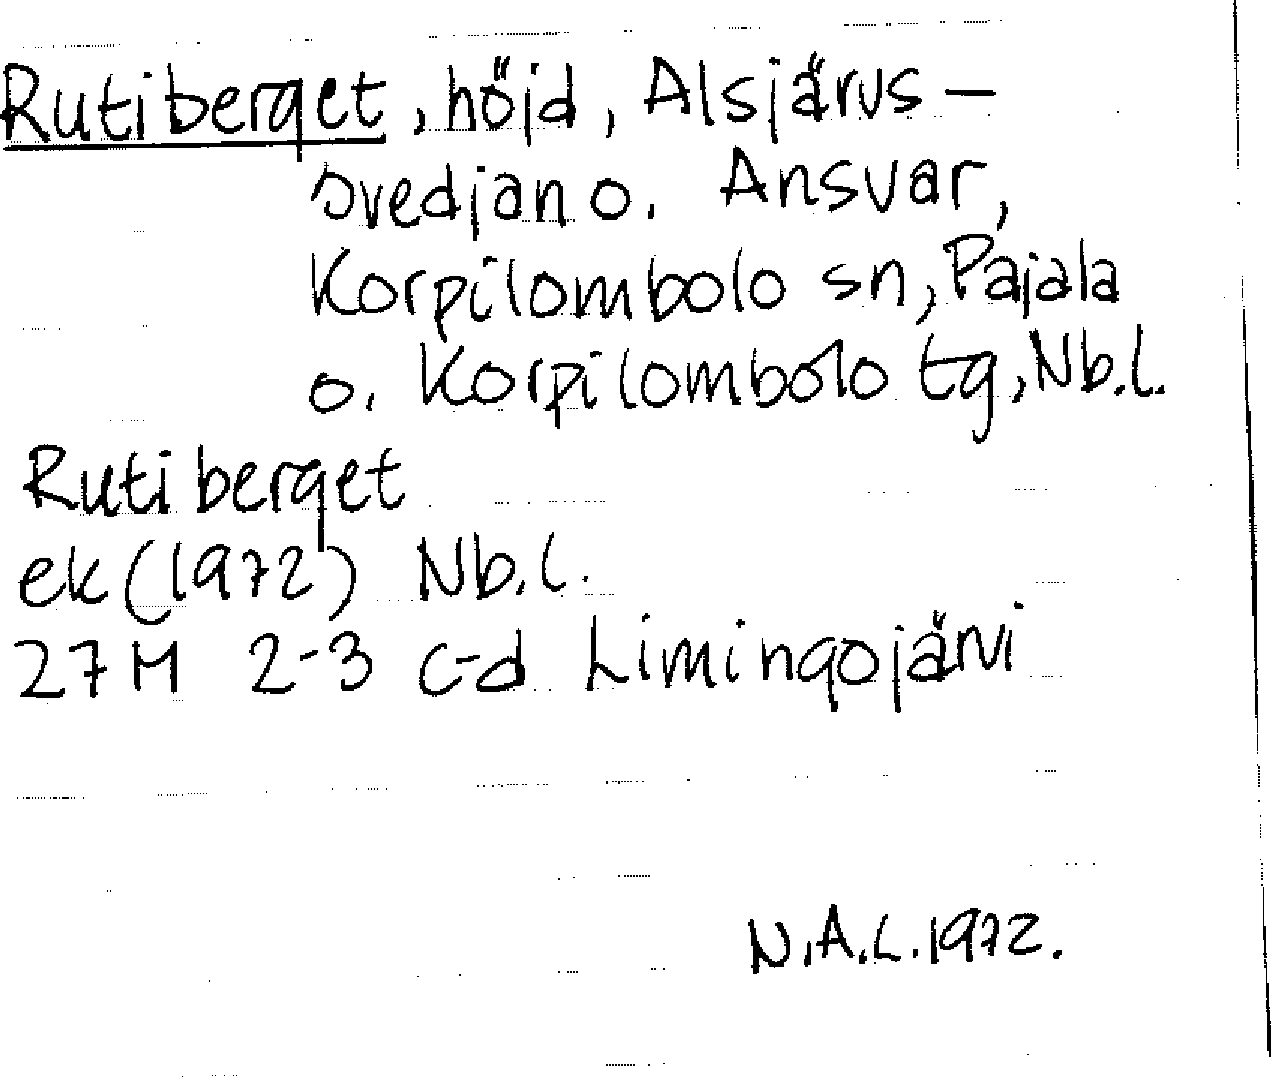 Rutiberget, höjd, Alsjärvs–
svedjan o. Ansvar,
Korpilombolo sn, Pajala
o. Korpilombolo tg, Nb.l.
Rutiberget
ek (1972) Nb.l.
27M 2-3 c-d Limingojärvi
N.A.L. 1972.